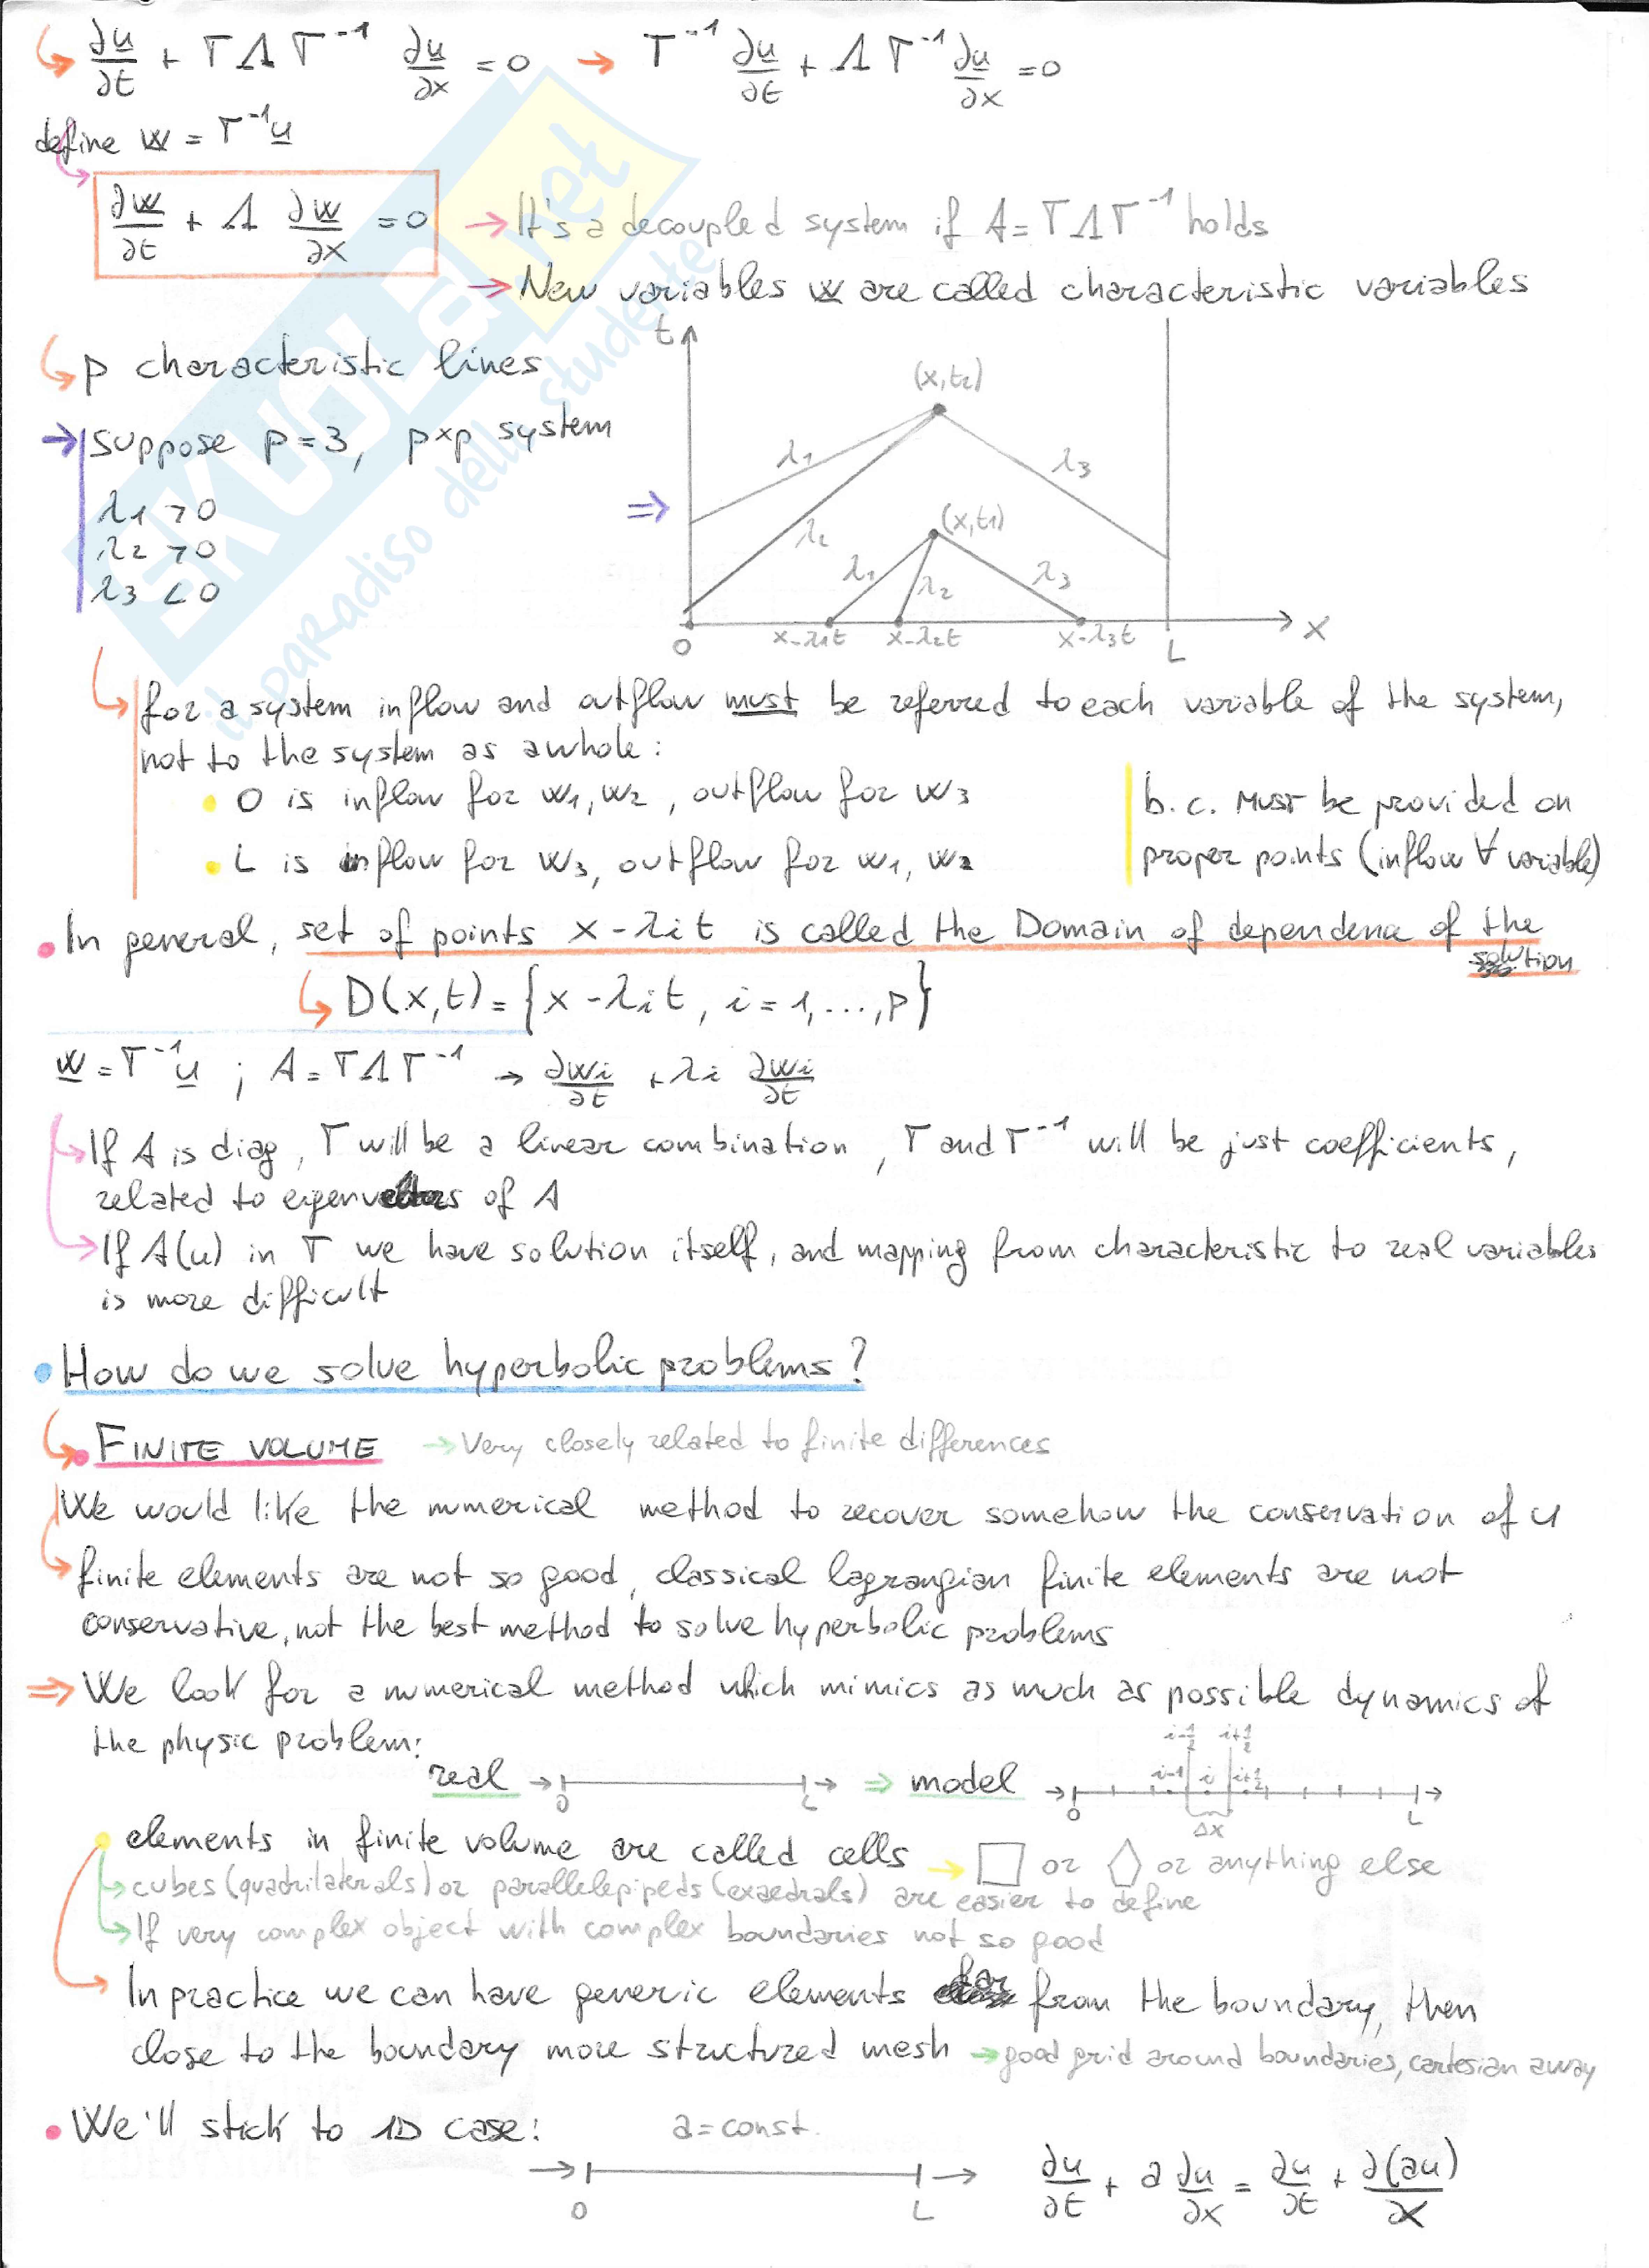 ↳ ∂u/∂t + TΛT⁻¹ ∂u/∂x = 0 → T⁻¹ ∂u/∂t + ΛT⁻¹ ∂u/∂x = 0
define w = T⁻¹u
∂w/∂t + Λ ∂w/∂x = 0 → It's a decoupled system if A = TΛT⁻¹ holds
→ New variables w are called characteristic variables
↳ p characteristic lines
→ suppose p = 3, p×p system
λ1 > 0
λ2 > 0
λ3 < 0
⇒
t
(x,t2)
λ1
λ3
λ2
(x,t1)
λ1
λ2
λ3
0
x-λ1t
x-λ2t
x-λ3t
L
x
↳ for a system inflow and outflow must be referred to each variable of the system,
not to the system as a whole:
• 0 is inflow for w1, w2, outflow for w3
• L is inflow for w3, outflow for w1, w2
b.c. MUST be provided on
proper points (inflow ∀ variable)
• In general, set of points x - λit is called the Domain of dependence of the
solution
↳ D(x,t) = {x - λit, i = 1, ..., p}
w = T⁻¹u ; A = TΛT⁻¹ → ∂wi/∂t + λi ∂wi/∂t
↳ If A is diag, T will be a linear combination, T and T⁻¹ will be just coefficients,
related to eigenvectors of A
↳ If A(u) in T we have solution itself, and mapping from characteristic to real variables
is more difficult
• How do we solve hyperbolic problems?
↳ • FINITE VOLUME → Very closely related to finite differences
We would like the numerical method to recover somehow the conservation of u
↳ finite elements are not so good, classical lagrangian finite elements are not
conservative, not the best method to solve hyperbolic problems
⇒ We look for a numerical method which mimics as much as possible dynamics of
the physic problem:
i-1/2 i+1/2
real → 0 L → ⇒ model → 0 i-1 i i+1/2 L →
Δx
• elements in finite volume are called cells → □ or ⬠ or anything else
↳ cubes (quadrilaterals) or parallelepipeds (exaedrals) are easier to define
↳ If very complex object with complex boundaries not so good
↳ In practice we can have generic elements far from the boundary, then
close to the boundary more structured mesh → good grid around boundaries, cartesian away
• We'll stick to 1D case:
a = const.
→ 0 L →
∂u/∂t + a ∂u/∂x = ∂u/∂t + ∂(au)/∂x
SKUOLA.net
il paradiso dello studente